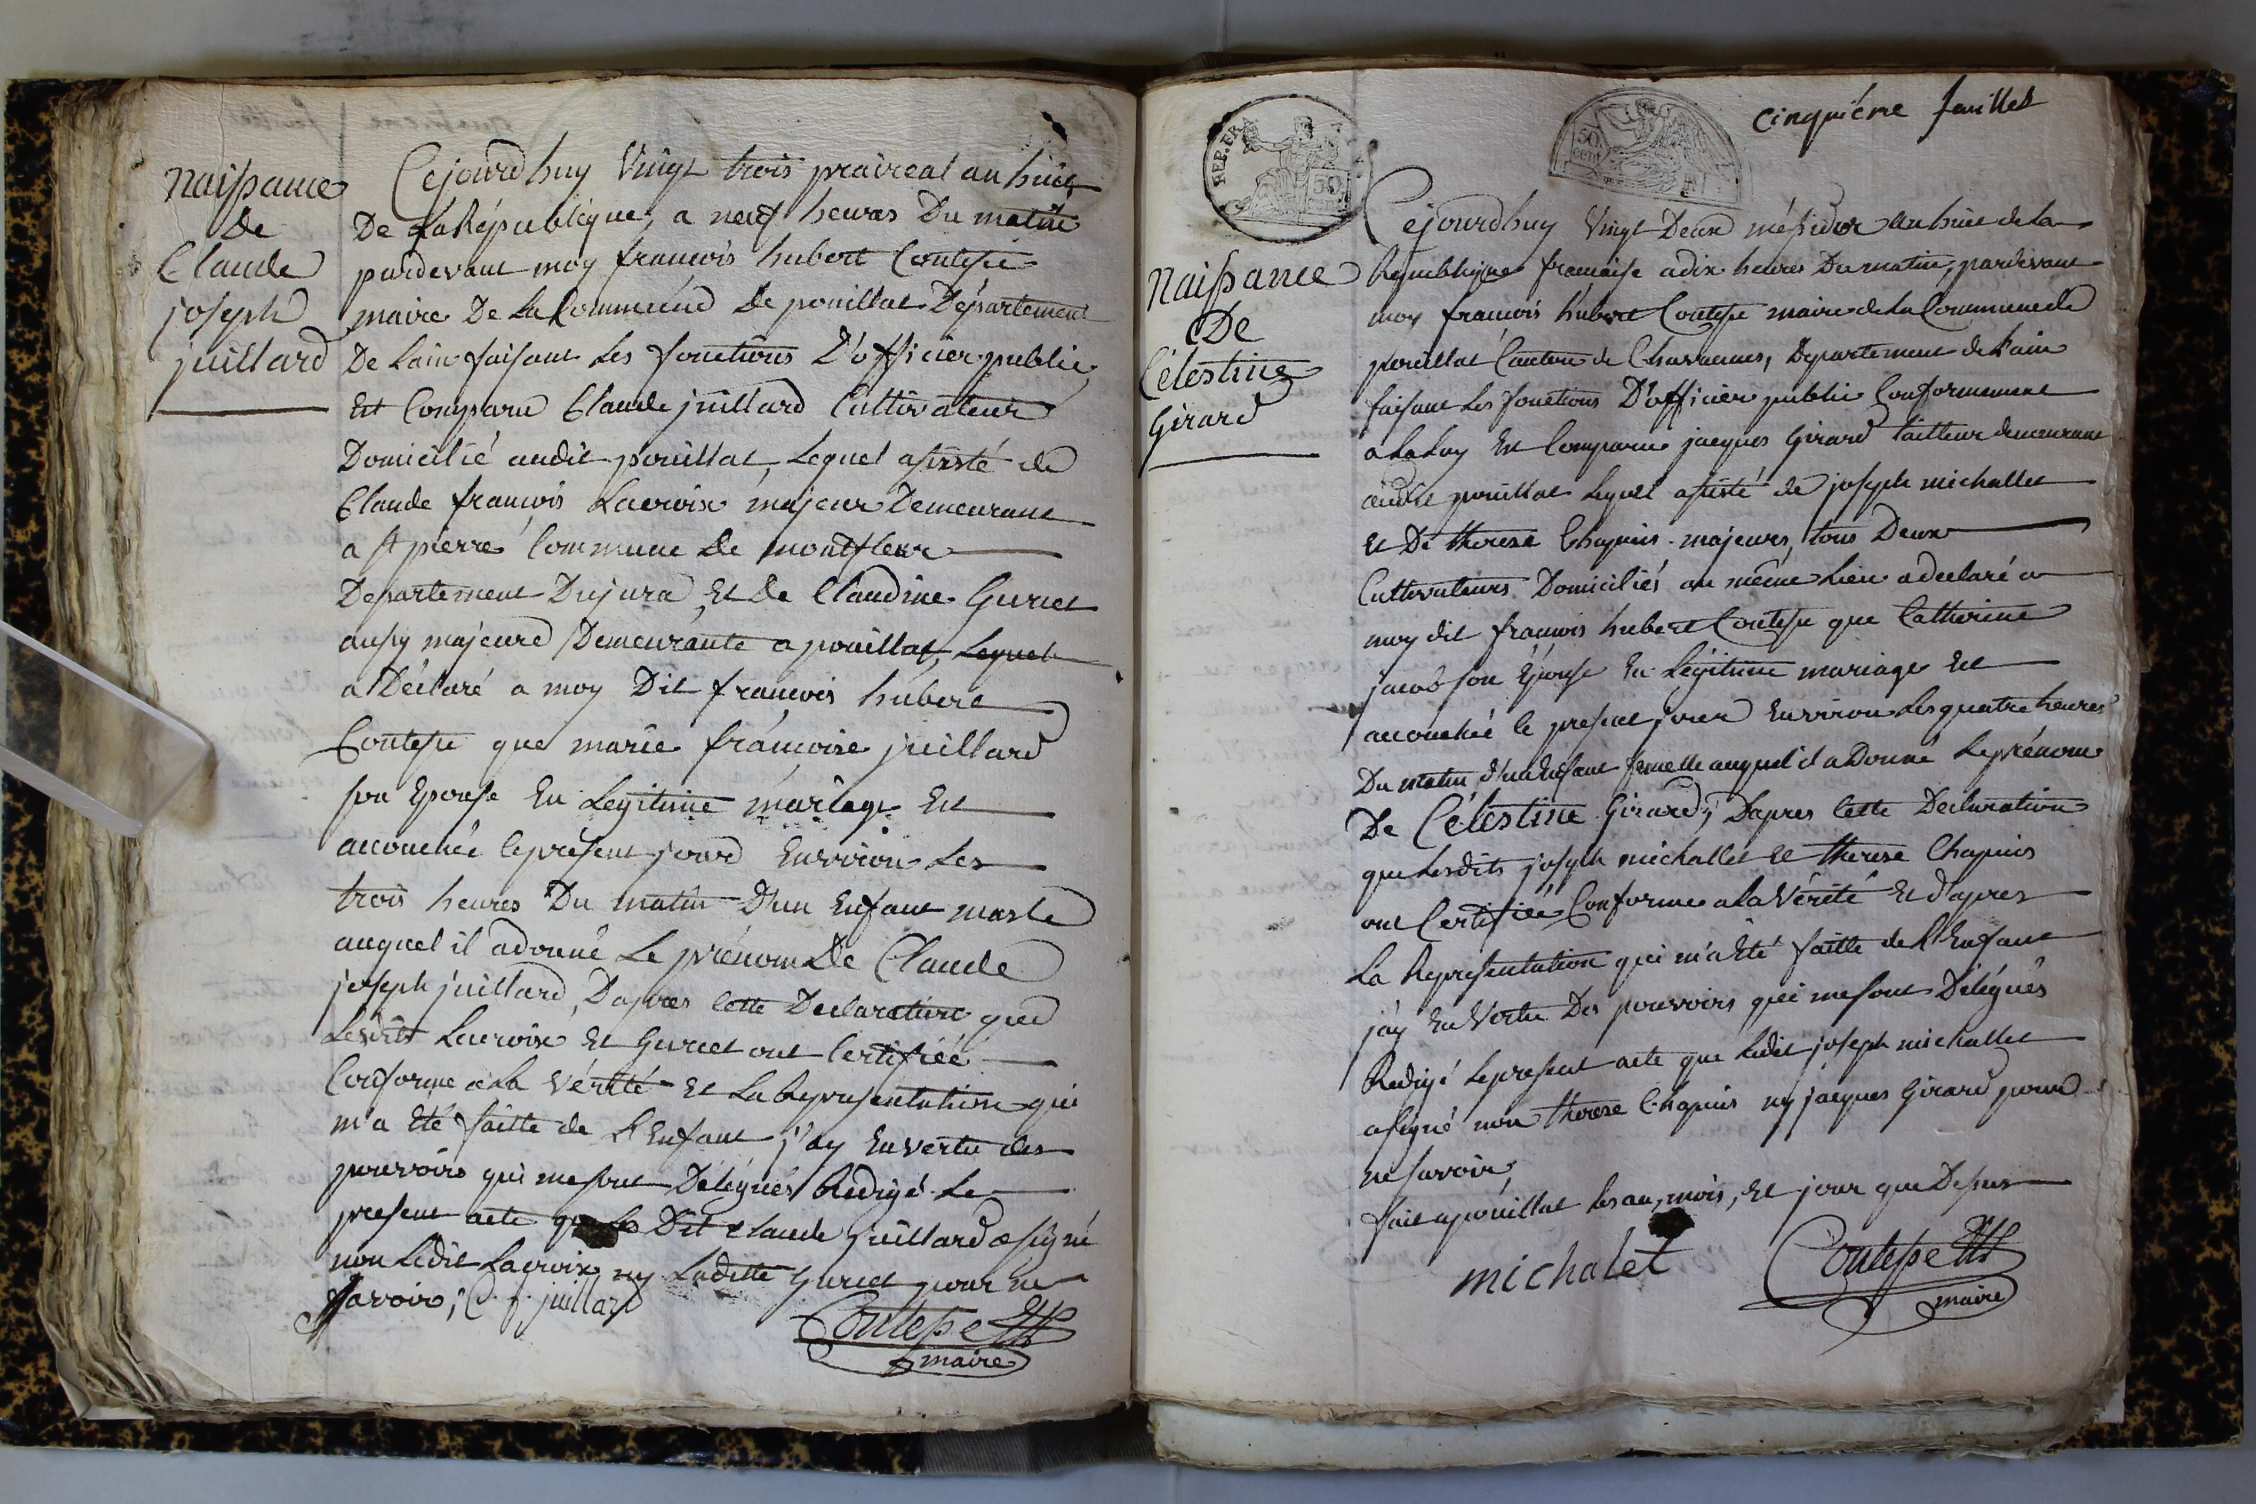 Naissance
de
Claude
joseph
juillard
Cejourdhuy vingt trois praireal an huit
De La République, a neuf heures Du matin
pardevant moy francois hubert Contesse
maire De La Commune de pouillat Département
De Lain faisant Les fonctions D'officier public
Est Comparu Claude juillard Cultivateur
Domicilié audit pouillat, Lequel assisté de
Claude francois Lacroix majeur Demeurant
a St pierre Commune de montfleur
Departement Dujura, Et de Claudine Guriet
aussy majeure Demeurante a pouillat, Lequel
a Déclaré a moy Dit francois hubert
Contesse que marie francoise juillard
son Epouse En Legitime mariage Est
accouchée le present jour Environ Les
trois heures Du matin D'un Enfant masle
auquel il a donné Le prénom De Claude
joseph juillard, Dapres cette Declaration que
Lesdits Lacroix Et Guriet ont Certifiée
Conforme a La vérité Et La Representation qui
m'a Eté faitte de L'Enfant, j'ay En vertu des
pouvoirs qui me sont Délégués Redigé Le
present acte que Le Dit Claude juillard a signé
non Ledit Lacroix ny Laditte Guriet pour ne
savoir; C. j. juillard
Contesse
maire
REP. FRA
50
50 cent
cinquiéme feuillet
Naissance
De
Célestine
Girard
Cejourdhuy Vingt Deux méssidor an huit de La
Republique francaise a dix heures Du matin, pardevant
moy francois hubert Contesse maire de La Commune de
pouillat Canton de Chavannes, Departement de L'ain
faisant Les fonctions D'officier public Conformement
a La Loy Est Comparu jacques Girard tailleur demeurant
audit pouillat Lequel assisté de joseph michallet
Et De therese Chapuis majeurs, tous Deux
Cultivateurs Domiciliés au même Lieu a declaré a
moy dit francois hubert Contesse que Catherine
jacob son Epouse En Légitime mariage Est
accouchée le present jour Environ Les quatre heures
Du matin, d'un Enfant femelle auquel il a Donné Le prénom
De Célestine Girard; Dapres cette Declaration
que Lesdits joseph michallet Et therese Chapuis
ont Certifiée Conforme a La Vérité Et d'apres
La Representation qui m'a Eté faitte de L'Enfant
j'ay En Vertu Des pouvoirs qui me sont Délégués
Redigé Le present acte que Ledit joseph michallet
a signé non therese Chapuis ny jacques Girard pour
ne savoir,
fait a pouillat Les an, mois, Et jour que Dessus
michalet
Contesse
maire